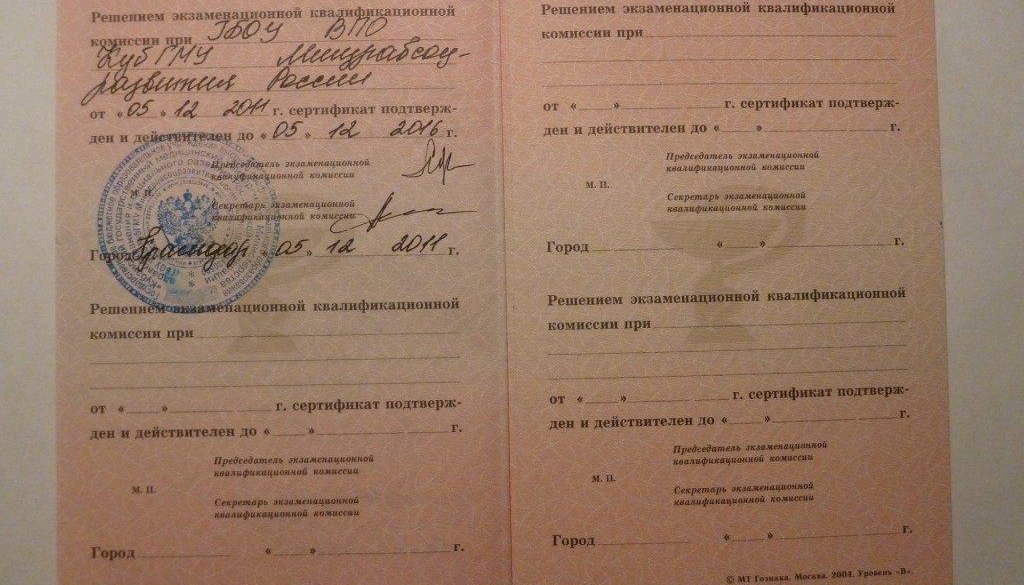 Решением экзаменационной квалификационной
комиссии при ГБОУ ВПО
КубГМУ Минздравсоц-
развития России
от «05» 12 2011 г. сертификат подтверж-
ден и действителен до «05» 12 2016 г.
Председатель экзаменационной
квалификационной комиссии
М. П.
Секретарь экзаменационной
квалификационной комиссии
Город Краснодар «05» 12 2011 г.
Решением экзаменационной квалификационной
комиссии при
от « » г. сертификат подтверж-
ден и действителен до « » г.
Председатель экзаменационной
квалификационной комиссии
М. П.
Секретарь экзаменационной
квалификационной комиссии
Город « » г.
Решением экзаменационной квалификационной
комиссии при
от « » г. сертификат подтверж-
ден и действителен до « » г.
Председатель экзаменационной
квалификационной комиссии
М. П.
Секретарь экзаменационной
квалификационной комиссии
Город « » г.
Решением экзаменационной квалификационной
комиссии при
от « » г. сертификат подтверж-
ден и действителен до « » г.
Председатель экзаменационной
квалификационной комиссии
М. П.
Секретарь экзаменационной
квалификационной комиссии
Город « » г.
© МТ Гознака. Москва. 2004. Уровень «В».